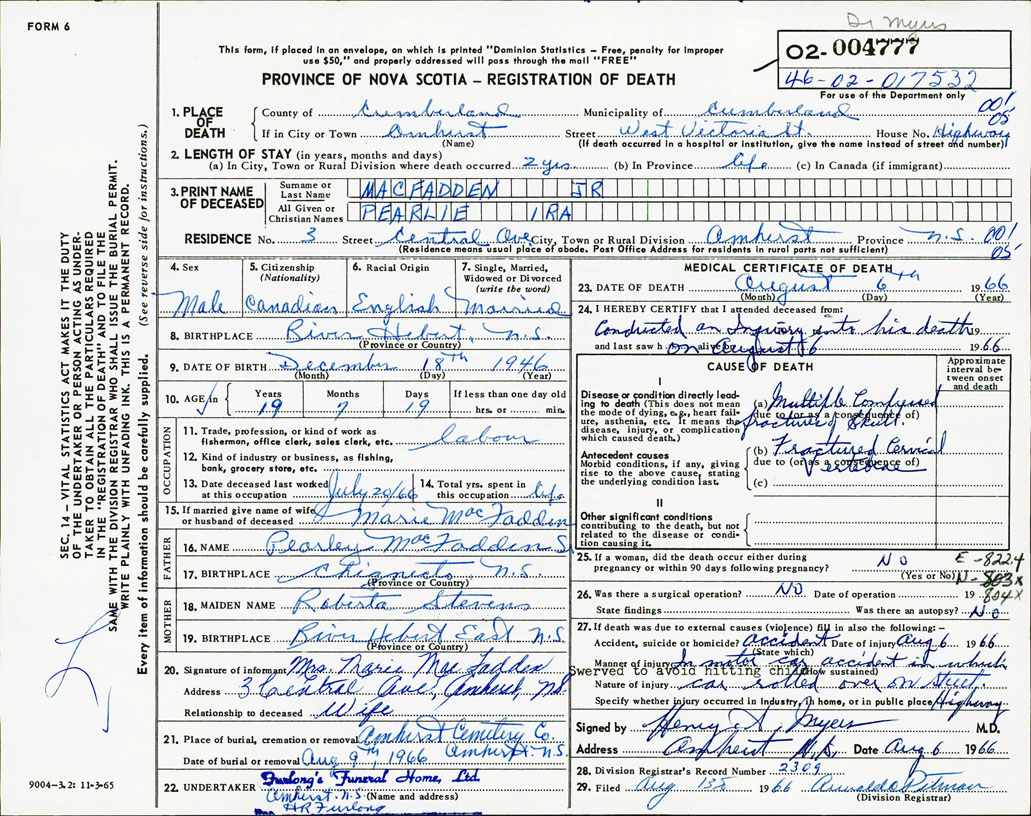 FORM 6
Dr Myers
This form, if placed in an envelope, on which is printed "Dominion Statistics – Free, penalty for improper
use $50," and properly addressed will pass through the mail "FREE"
PROVINCE OF NOVA SCOTIA – REGISTRATION OF DEATH
02- 004777
46-02-017532
For use of the Department only
001
05
1. PLACE OF DEATH { County of Cumberland Municipality of Cumberland
If in City or Town Amhurst Street West Victoria St. House No. Highway
(Name) (If death occurred in a hospital or institution, give the name instead of street and number)
2. LENGTH OF STAY (in years, months and days)
(a) In City, Town or Rural Division where death occurred 2 yrs. (b) In Province life (c) In Canada (if immigrant)
3. PRINT NAME OF DECEASED { Surname or Last Name MACFADDEN JR
All Given or Christian Names PEARLIE IRA
RESIDENCE No. 3 Street Central Ave City, Town or Rural Division Amhirst Province N.S. 001
05
(Residence means usual place of abode. Post Office Address for residents in rural parts not sufficient)
4. Sex Male
5. Citizenship (Nationality) Canadian
6. Racial Origin English
7. Single, Married, Widowed or Divorced (write the word) Married
8. BIRTHPLACE River Hebert, N.S.
(Province or Country)
9. DATE OF BIRTH December 18th 1946
(Month) (Day) (Year)
10. AGE in { Years 19 Months 7 Days 19 If less than one day old
hrs. or min.
OCCUPATION
11. Trade, profession, or kind of work as
fisherman, office clerk, sales clerk, etc. labour
12. Kind of industry or business, as fishing,
bank, grocery store, etc.
13. Date deceased last worked at this occupation July 20/66
14. Total yrs. spent in this occupation life
15. If married give name of wife
or husband of deceased Marie MacFadden
FATHER
16. NAME Pearley MacFadden S
17. BIRTHPLACE Chignecto N.S.
(Province or Country)
MOTHER
18. MAIDEN NAME Roberta Stevens
19. BIRTHPLACE River Hebert East N.S.
(Province or Country)
20. Signature of informant Mrs. Marie MacFadden
Address 3 Central Ave, Amherst, N.S.
Relationship to deceased Wife
21. Place of burial, cremation or removal Amhirst Cemetery Co.
Amhirst N.S.
Date of burial or removal Aug 9th, 1966
22. UNDERTAKER Furlong's Funeral Home, Ltd.
Amhirst. N.S. (Name and address)
HR Furlong
MEDICAL CERTIFICATE OF DEATH
23. DATE OF DEATH August 6th 1966
(Month) (Day) (Year)
24. I HEREBY CERTIFY that I attended deceased from:
Conducted an Inquiry into his death 19
and last saw h alive on August 6 1966
CAUSE OF DEATH
Approximate interval between onset and death
I
Disease or condition directly leading to death (This does not mean the mode of dying, e.g., heart failure, asthenia, etc. It means the disease, injury, or complication which caused death.)
(a) Multiple Compressed
due to (or as a consequence of)
fractures of Skull.
Antecedent causes
Morbid conditions, if any, giving rise to the above cause, stating the underlying condition last.
(b) Fractured Cervical
due to (or as a consequence of)
Vertebrae
(c)
II
Other significant conditions
contributing to the death, but not related to the disease or condition causing it.
25. If a woman, did the death occur either during
pregnancy or within 90 days following pregnancy? NO
(Yes or No)
E-822.4
N-803x
804x
26. Was there a surgical operation? NO Date of operation 19
State findings Was there an autopsy? No
27. If death was due to external causes (violence) fill in also the following:–
Accident, suicide or homicide? accident Date of injury Aug 6 1966
(State which)
Manner of injury In motor car accident in which
swerved to avoid hitting child (How sustained)
Nature of injury car rolled over on Street.
Specify whether injury occurred in Industry, in home, or in public place Highway
Signed by Henry A. Myers M.D.
Address Amherst N.S. Date Aug 6 1966
28. Division Registrar's Record Number 2309
29. Filed Aug 15th 1966
(Division Registrar)
SEC. 14 – VITAL STATISTICS ACT MAKES IT THE DUTY
OF THE UNDERTAKER OR PERSON ACTING AS UNDER-
TAKER TO OBTAIN ALL THE PARTICULARS REQUIRED
IN THE "REGISTRATION OF DEATH" AND TO FILE THE
SAME WITH THE DIVISION REGISTRAR WHO SHALL ISSUE THE BURIAL PERMIT.
WRITE PLAINLY WITH UNFADING INK. THIS IS A PERMANENT RECORD.
Every item of information should be carefully supplied. (See reverse side for instructions.)
9004-3.2: 11-3-65